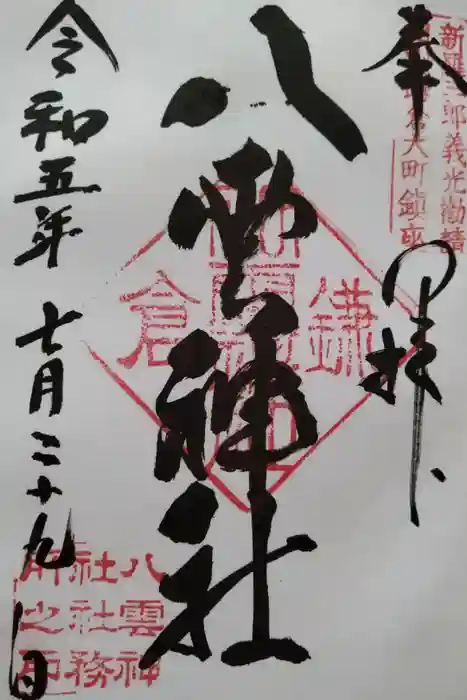 奉拝
新羅三郎義光勧請
鎌倉大町鎮座
八雲神社
鎌倉
八雲神
社社務
所之印
令和五年七月二十九日